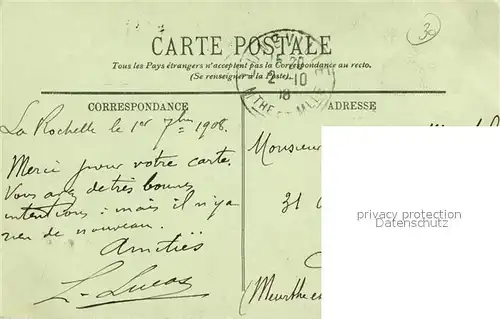 CARTE POSTALE
Tous les Pays étrangers n'acceptent pas la Correspondance au recto.
(Se renseigner à la Poste).
CORRESPONDANCE
La Rochelle le 1er 7bre 1908.
Merci pour votre carte.
Vous avez de très bonnes
intentions: mais il n'y a
rien de nouveau.
Amitiés
L. Lucas
ADRESSE
Monsieur
31
(Meurthe et
30
privacy protection
Datenschutz